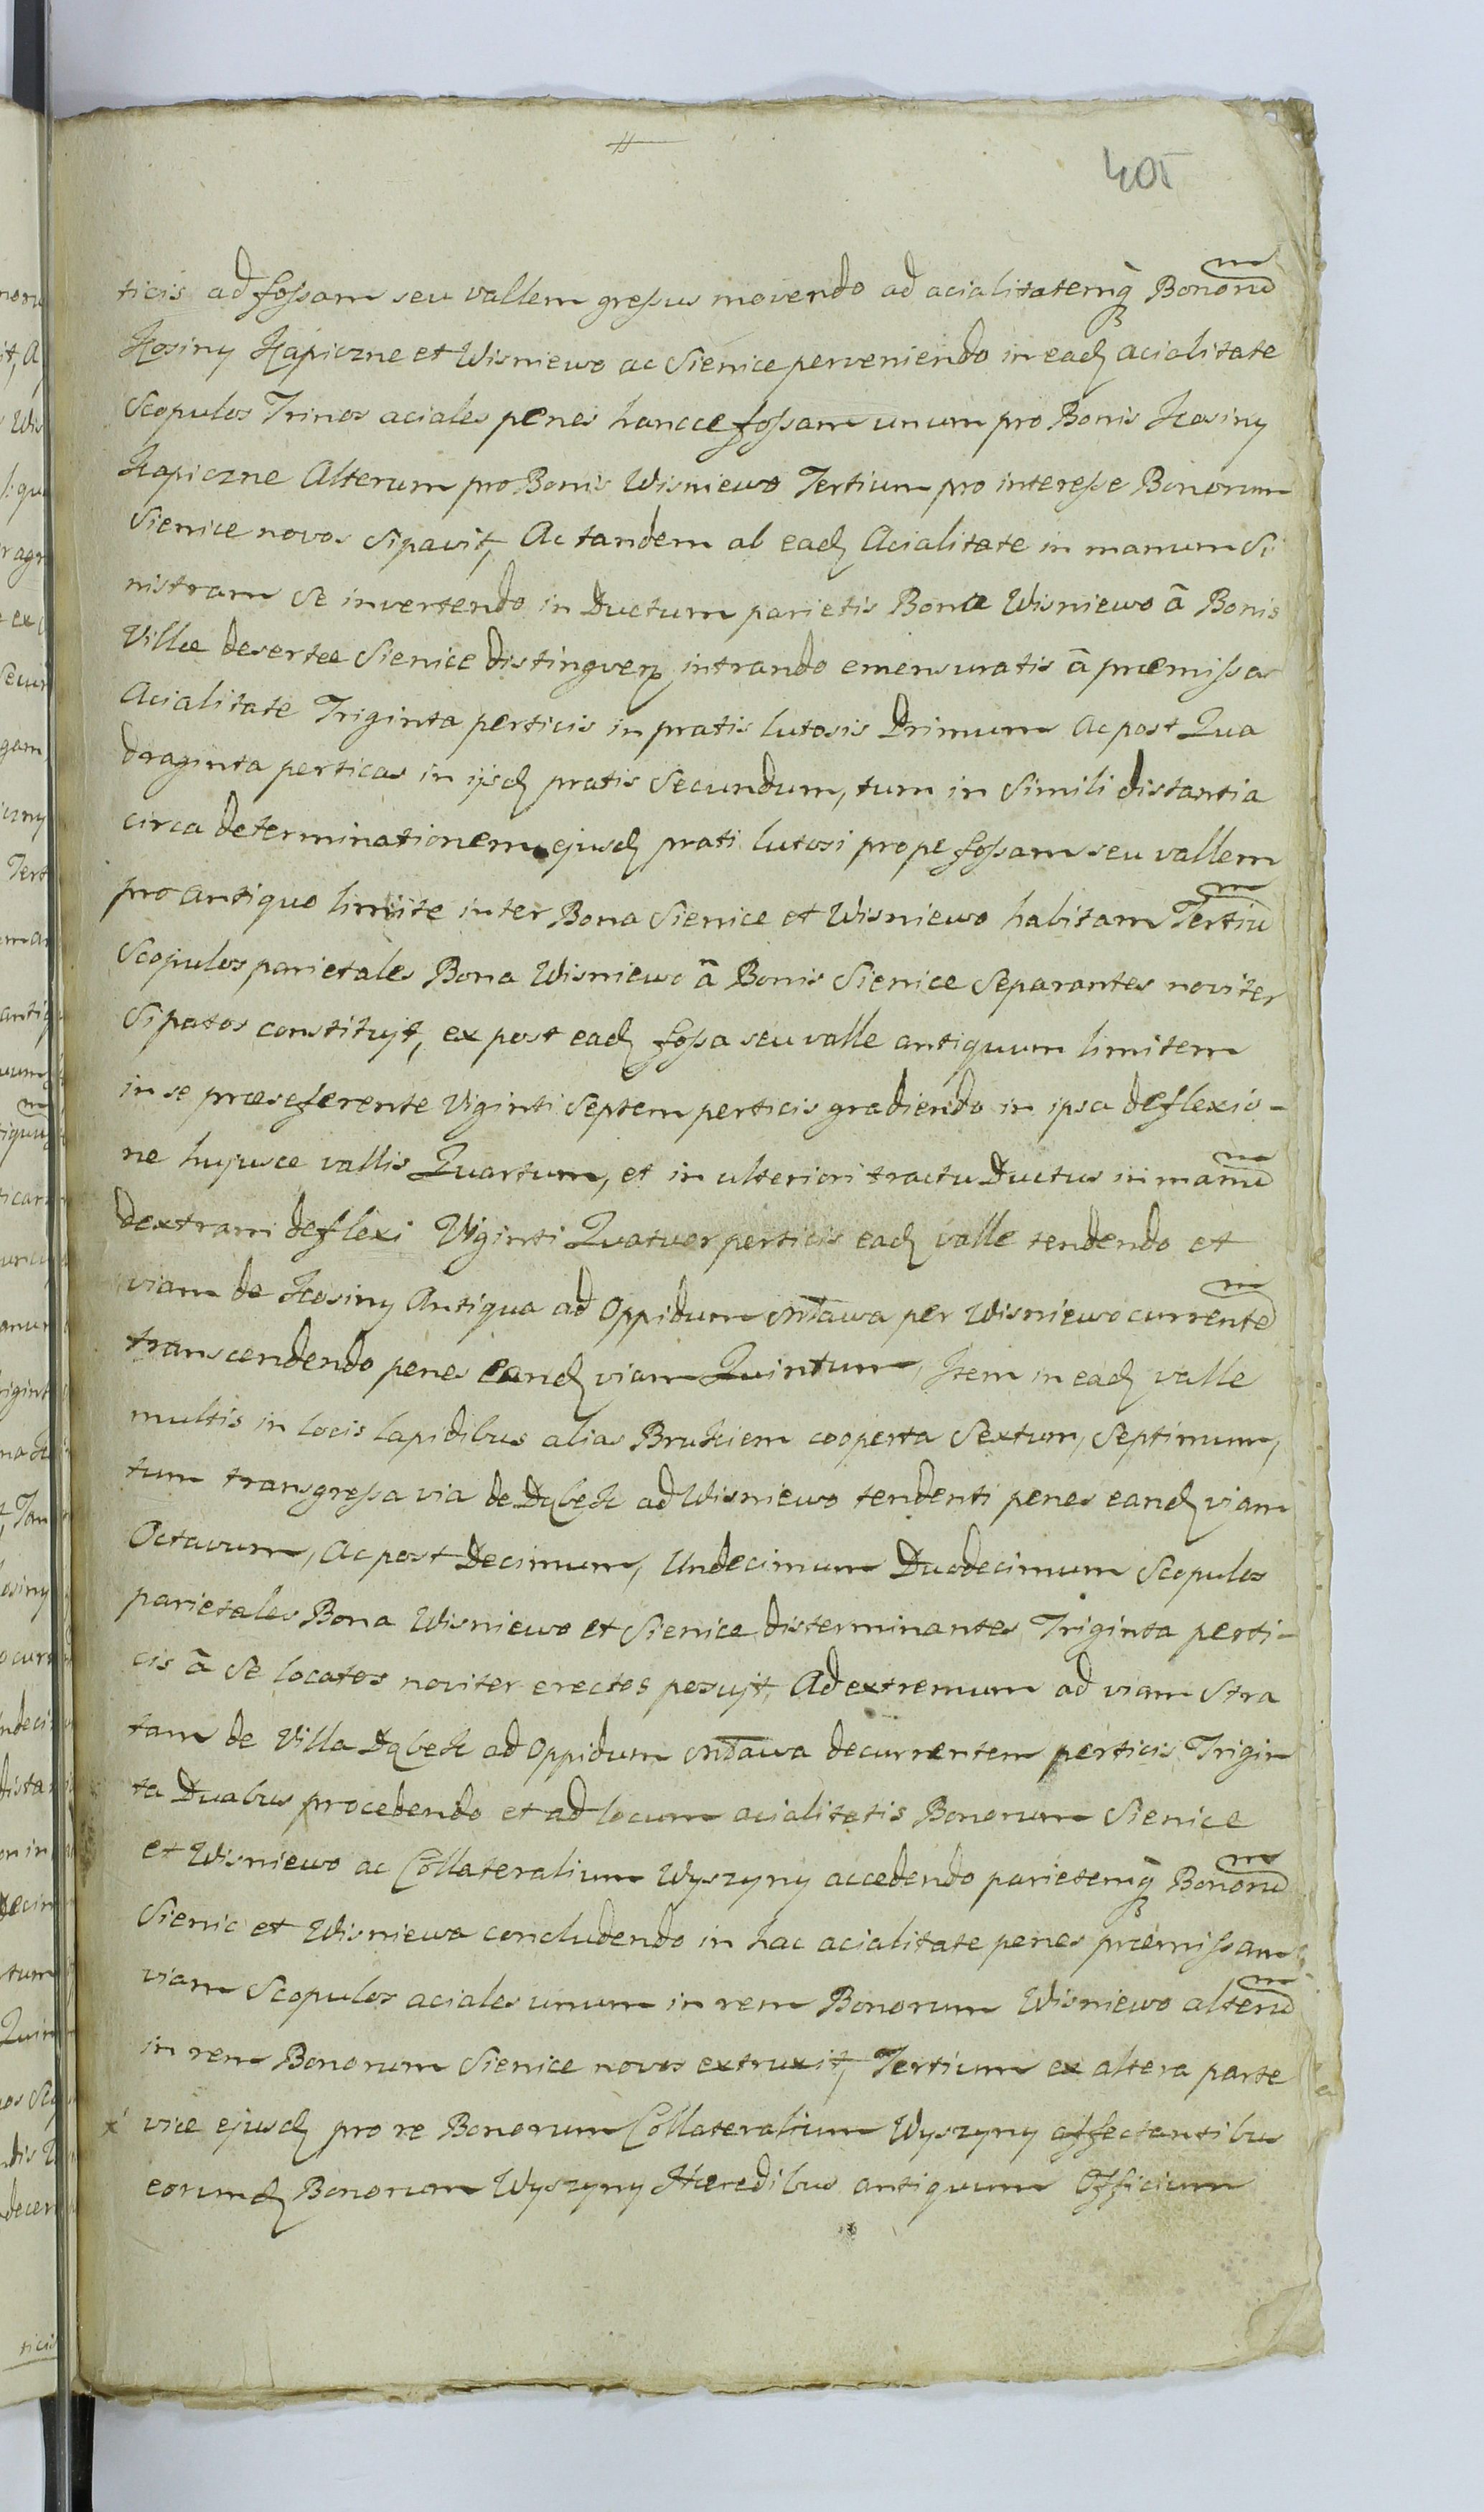 405
ticis ad fossam seu vallem gressus movendo ad acialitatemq̀ Bonorũ
Kosiny Kapiczne et Wisniewo ac Sienice perveniendo in eadɧ acialitate
Scopulos Trinos aciales penes hancce fossam unum pro Bonis Kosiny
Kapiczne Alterum pro Bonis Wisniewo Tertium pro interesse Bonorum
Sienice novos Sipavit, Ac tandem ab eadɧ Acialitate in manum Si
nistram Se invertendo in Ductum parietis Bona Wisniewo ā Bonis
Villæ desertæ Sienice distingven intrando emensuratis ā præmissa
Acialitate Triginta perticis in pratis lutosis Primum Ac post Qua
draginta perticas in ijsdɧ pratis Secundum, tum in Simili distantia
circa determinationem ejusdɧ prati lutosi prope fossam seu vallem
pro antiquo limite inter Bona Sienice et Wisniewo habitam Tertiũ
Scopulos parietales Bona Wisniewo ā Bonis Sienice Separantes noviter
Sipatos constituit, ex post eadɧ fossa seu valle antiquum limitem
in se præseferente Viginti Septem perticis gradiendo in ipsa deflexio-
ne hujusce vallis Quartum, et in ulteriori tractu Ductus in manũ
dextram deflexi Viginti Quatuor perticis eadɧ valle tendendo et
viam de Kosiny Antiqua ad Oppidum Mława per Wisniewo currentẽ
transcendendo penes eandɧ viam Quintum, Item in eadɧ valle
multis in locis lapidibus alias Brukiem cooperta Sextum, Septimum,
tum transgressa via de Dąbek ad Wisniewo tendenti penes eandɧ viam
Octavum, Ac post Decimum, Undecimum Duodecimum Scopulos
parietales Bona Wisniewo et Sienice disterminantes Triginta perti-
cis ā Se locatos noviter erectos posuit, Ad extremum ad viam Stra
tam de Villa Dąbek ad Oppidum Mława decurrentem perticis Trigin
ta Duabus procedendo et ad locum acialitatis Bonorum Sienice
et Wisniewo ac Collateralium Wyszyny accedendo parietemq̀ Bonorũ
Sienic et Wisniewo concludendo in hac acialitate penes præmissam
viam Scopulos aciales unum in rem Bonorum Wisniewo alterũ
in rem Bonorum Sienice novos extruxit, Tertium ex altera parte
viæ ejusdɧ pro re Bonorum Collateralium Wyszyny affectantibus
eorumdɧ Bonorum Wyszyny Hæredibus antiquum Officium